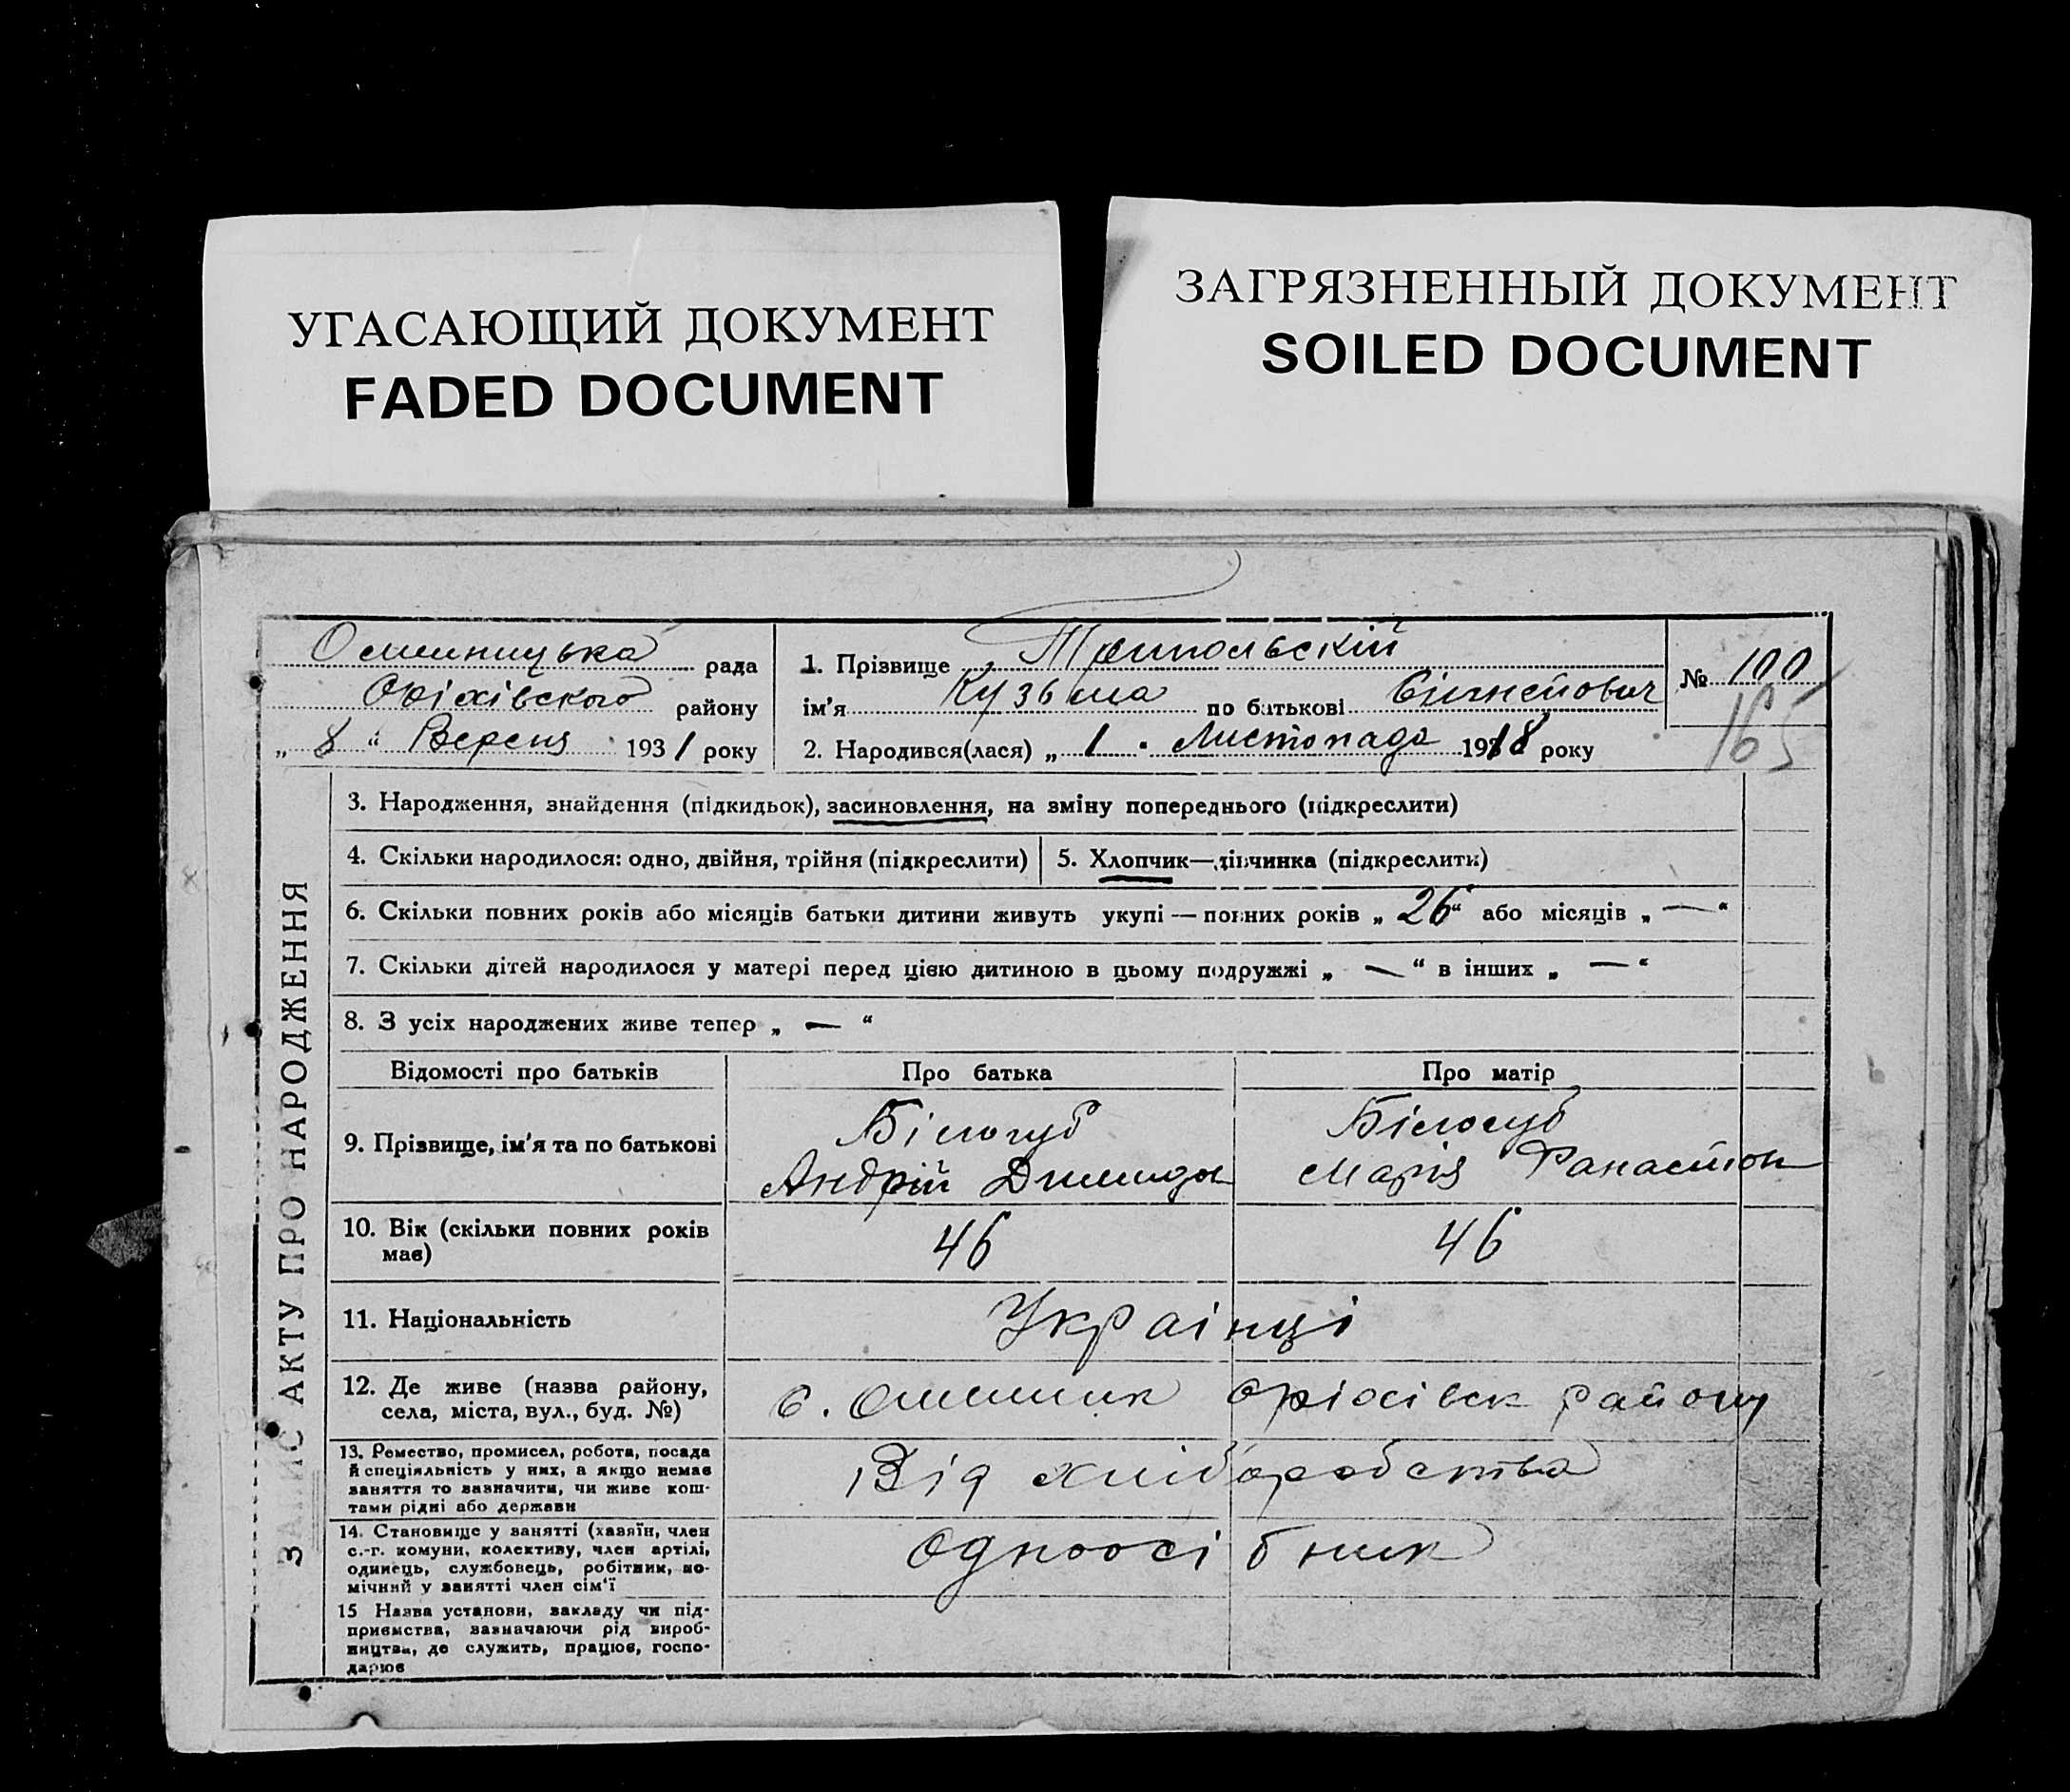 УГАСАЮЩИЙ ДОКУМЕНТ
FADED DOCUMENT
ЗАГРЯЗНЕННЫЙ ДОКУМЕНТ
SOILED DOCUMENT
рада
району
„ 8 “ Вересня 1931 року
1. Прізвище Трипольскій
ім'я Кузьма по батькові
2. Народився(лася) „ 1 “ Листопада 1918 року
№ 100
165
ЗАПИС АКТУ ПРО НАРОДЖЕННЯ
3. Народження, знайдення (підкидьок), засиновлення, на зміну попереднього (підкреслити)
4. Скільки народилося: одно, двійня, трійня (підкреслити)
5. Хлопчик—дівчинка (підкреслити)
6. Скільки повних років або місяців батьки дитини живуть укупі — повних років „ 26 “ або місяців „ — “
7. Скільки дітей народилося у матері перед цією дитиною в цьому подружжі „ — “ в інших „ — “
8. З усіх народжених живе тепер „ — “
Відомості про батьків
Про батька
Про матір
9. Прізвище, ім'я та по батькові
Білогуб
Андрій
Білогуб
Марія
10. Вік (скільки повних років
має)
46
46
11. Національність
Українці
12. Де живе (назва району,
села, міста, вул., буд. №)
с. Оріхівск району
13. Ремество, промисел, робота, посада
й спеціяльність у них, а якщо немає
заняття то зазначити, чи живе кош-
тами рідні або держави
Від хліборобства
14. Становище у занятті (хазяїн, член
с.-г. комуни, колективу, член артілі,
одинець, службовець, робітник, по-
мічний у занятті член сім'ї
Одноосібник
15 Назва установи, закладу чи під-
приємства, зазначаючи рід вироб-
ництва, де служить, працює, госпо-
дарює